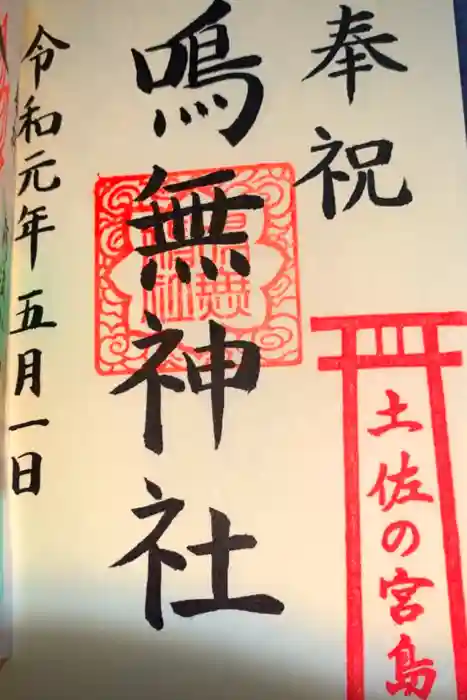 奉祝
土佐の宮島
鳴無神社
令和元年五月一日